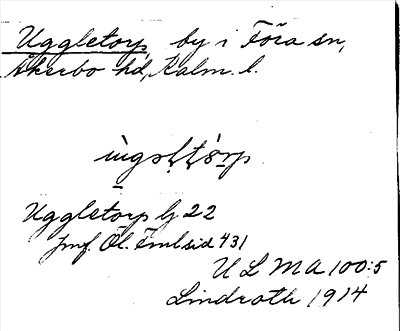 Uggletorp, by i Föra sn,
Åkerbo hd, Kalm. l.
Uggletorp lj 22
Jmf. Öl. Fmlsid 431
ULMA 100:5
Lindroth 1914